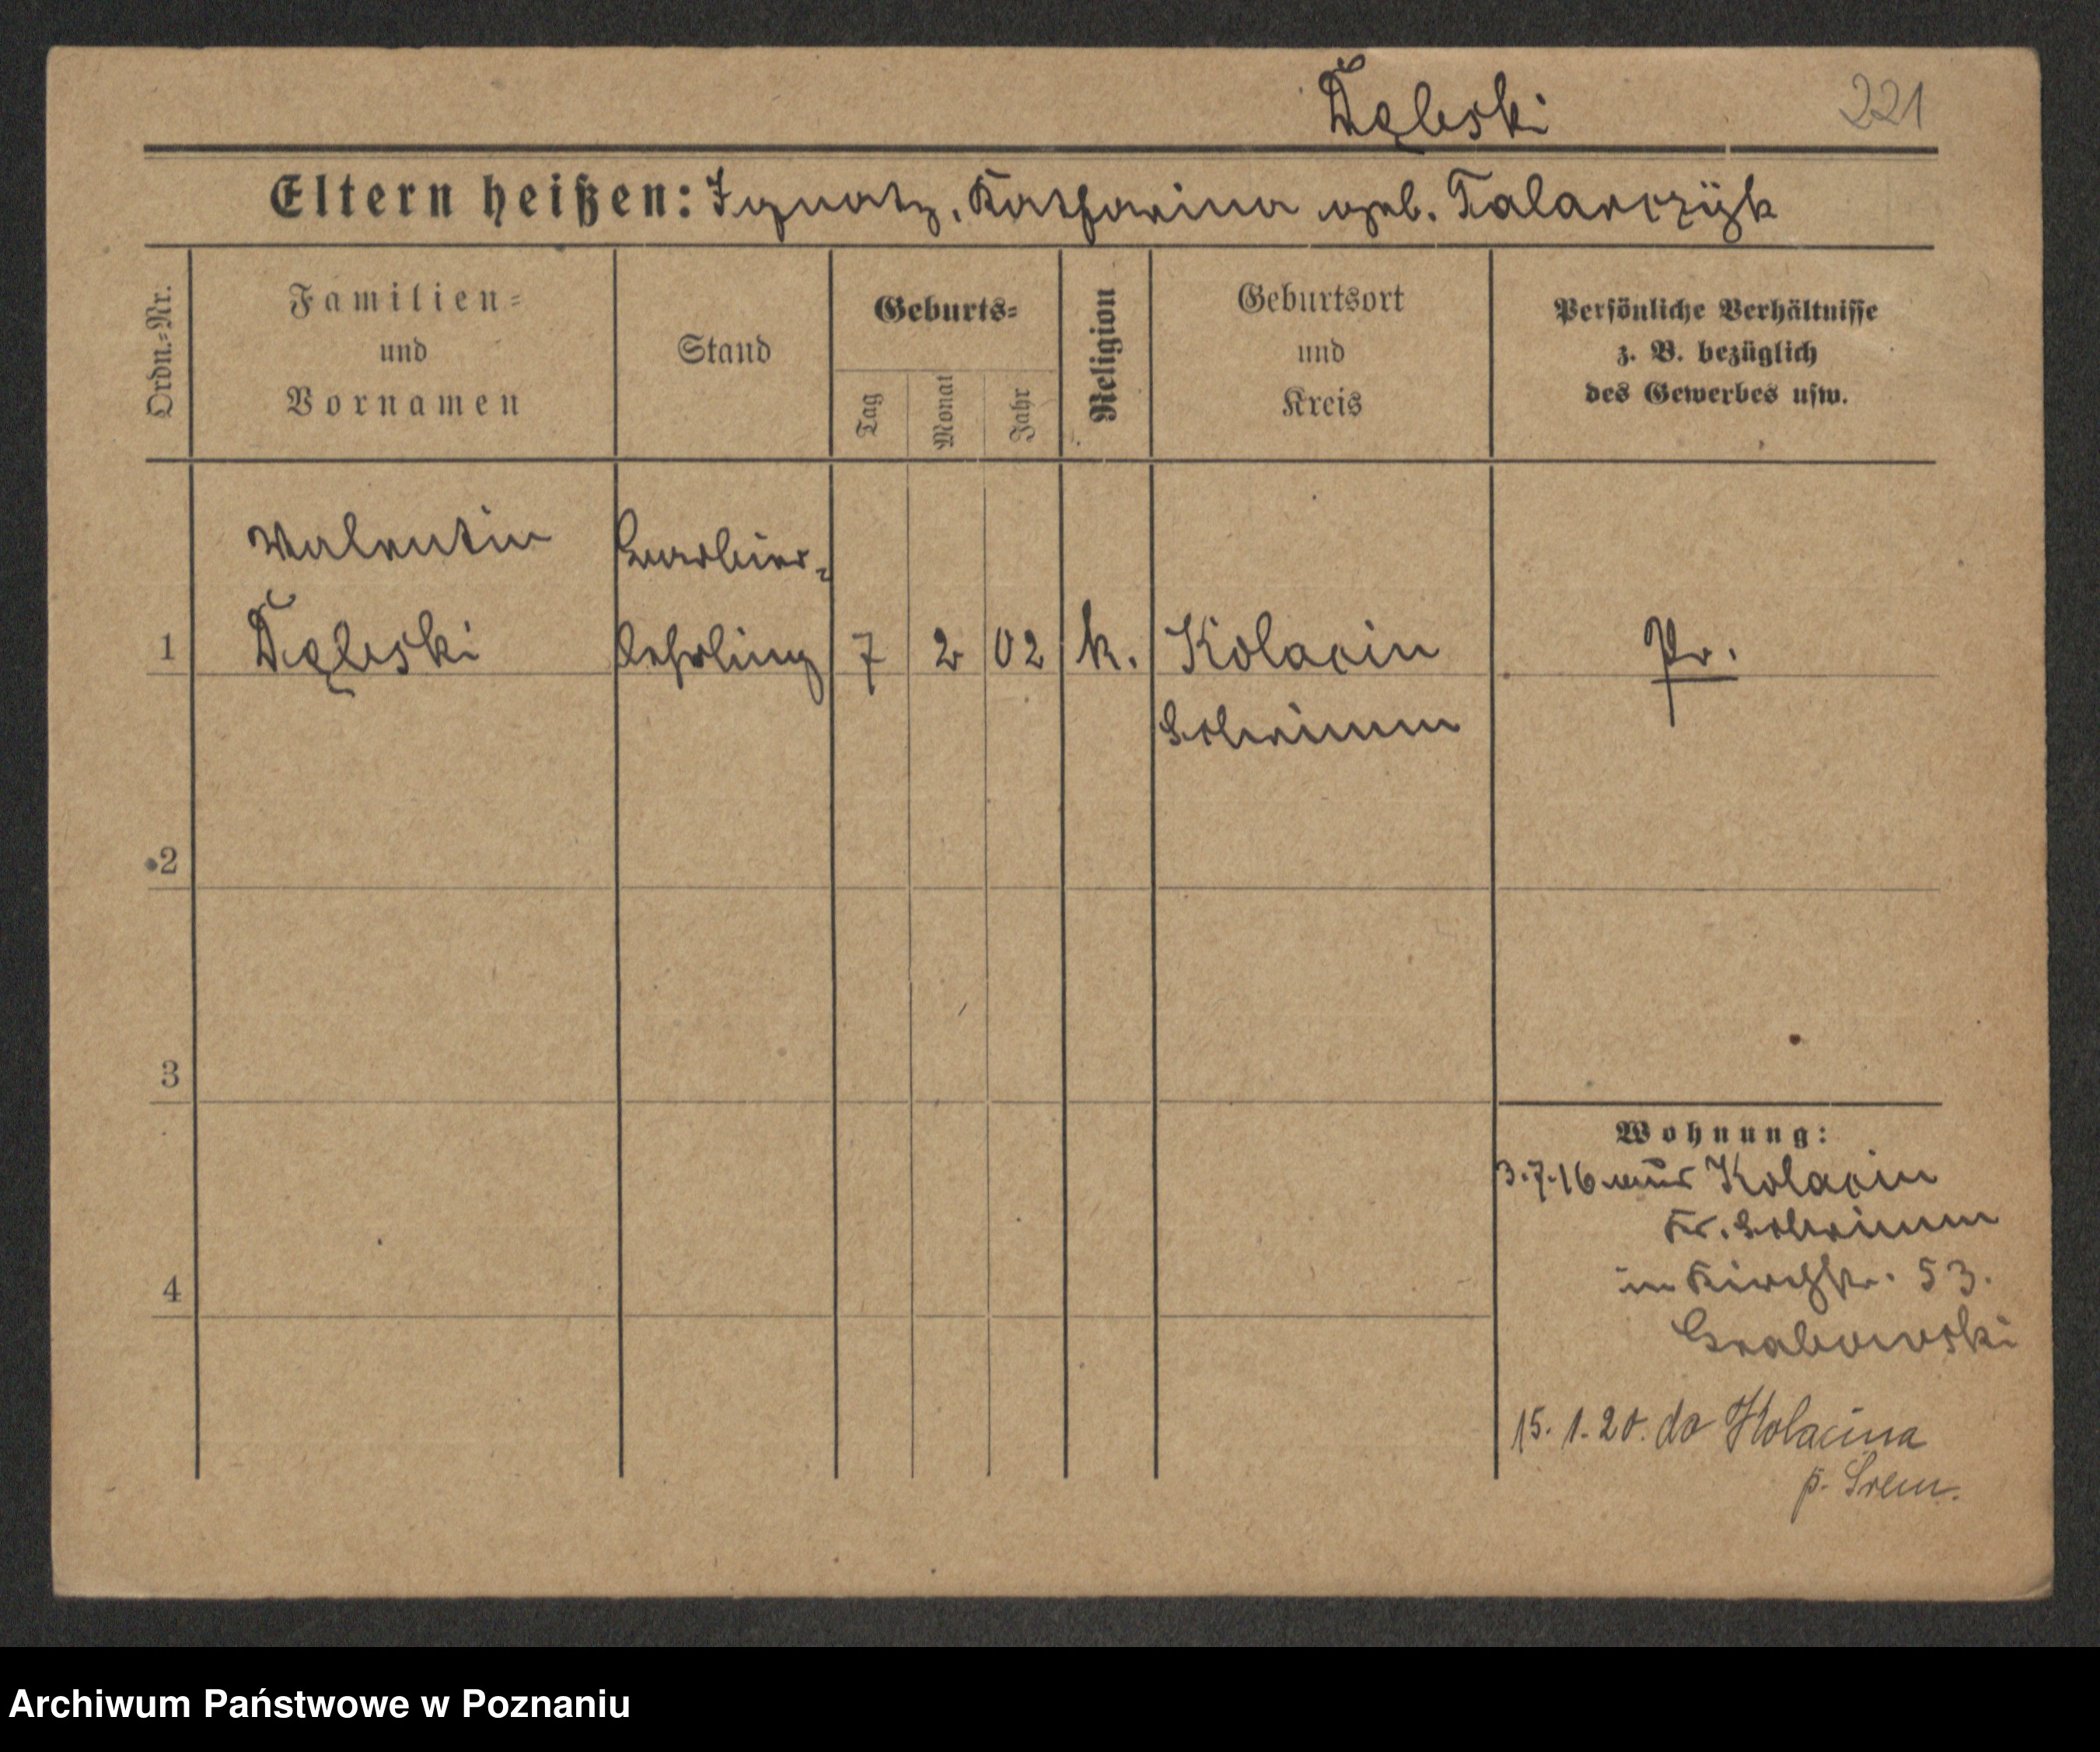 Dębski 221
Eltern heißen: Ignatz, Katharina geb. Talarczyk
Ordn.-Nr.
Familien- und Vornamen
Stand
Geburts-
Tag
Monat
Jahr
Religion
Geburtsort und Kreis
Persönliche Verhältnisse z. B. bezüglich des Gewerbes usw.
Valentin Barbier-
1 Dębski lehrling 7 2 02 k. Kolacin Pr.
Schrimm
2
3
4
Wohnung:
3.7.16 aus Kolacin
Kr. Schrimm
in Kirchstr. 53.
Grabowski
15. 1. 20. do Kolacina
p. Śrem.
Archiwum Państwowe w Poznaniu